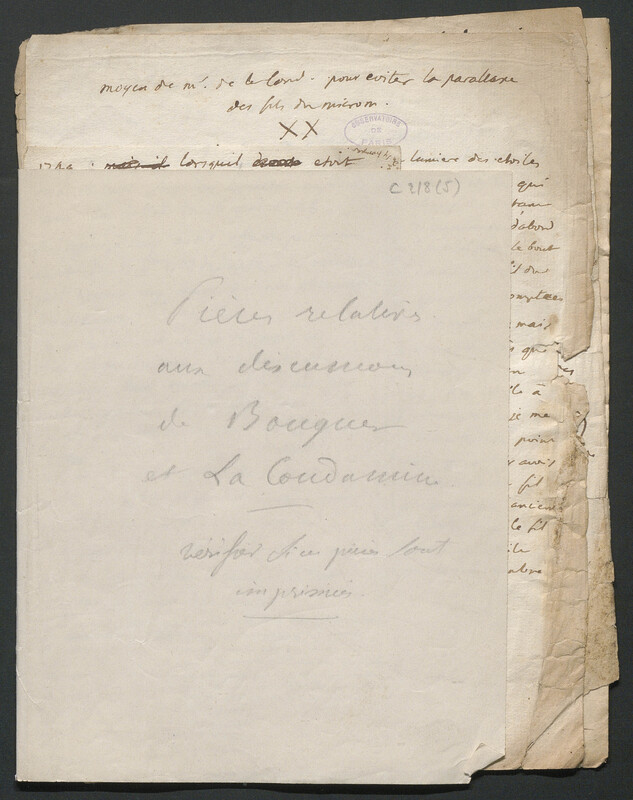 moyen de mr. de la Cond. pour eviter la parallaxe
des fils du microm.
XX
OBSERVATOIRE
DE
PARIS
lorsquil etoit lumiere des etoiles
C 2/8 (5)
qui
d'abord
le bout
mais
à
je me
point
fil
le fil
Pièces relatives
aux discussions
de Bouguer
et La Condamine
vérifier si ces pièces sont
imprimées.